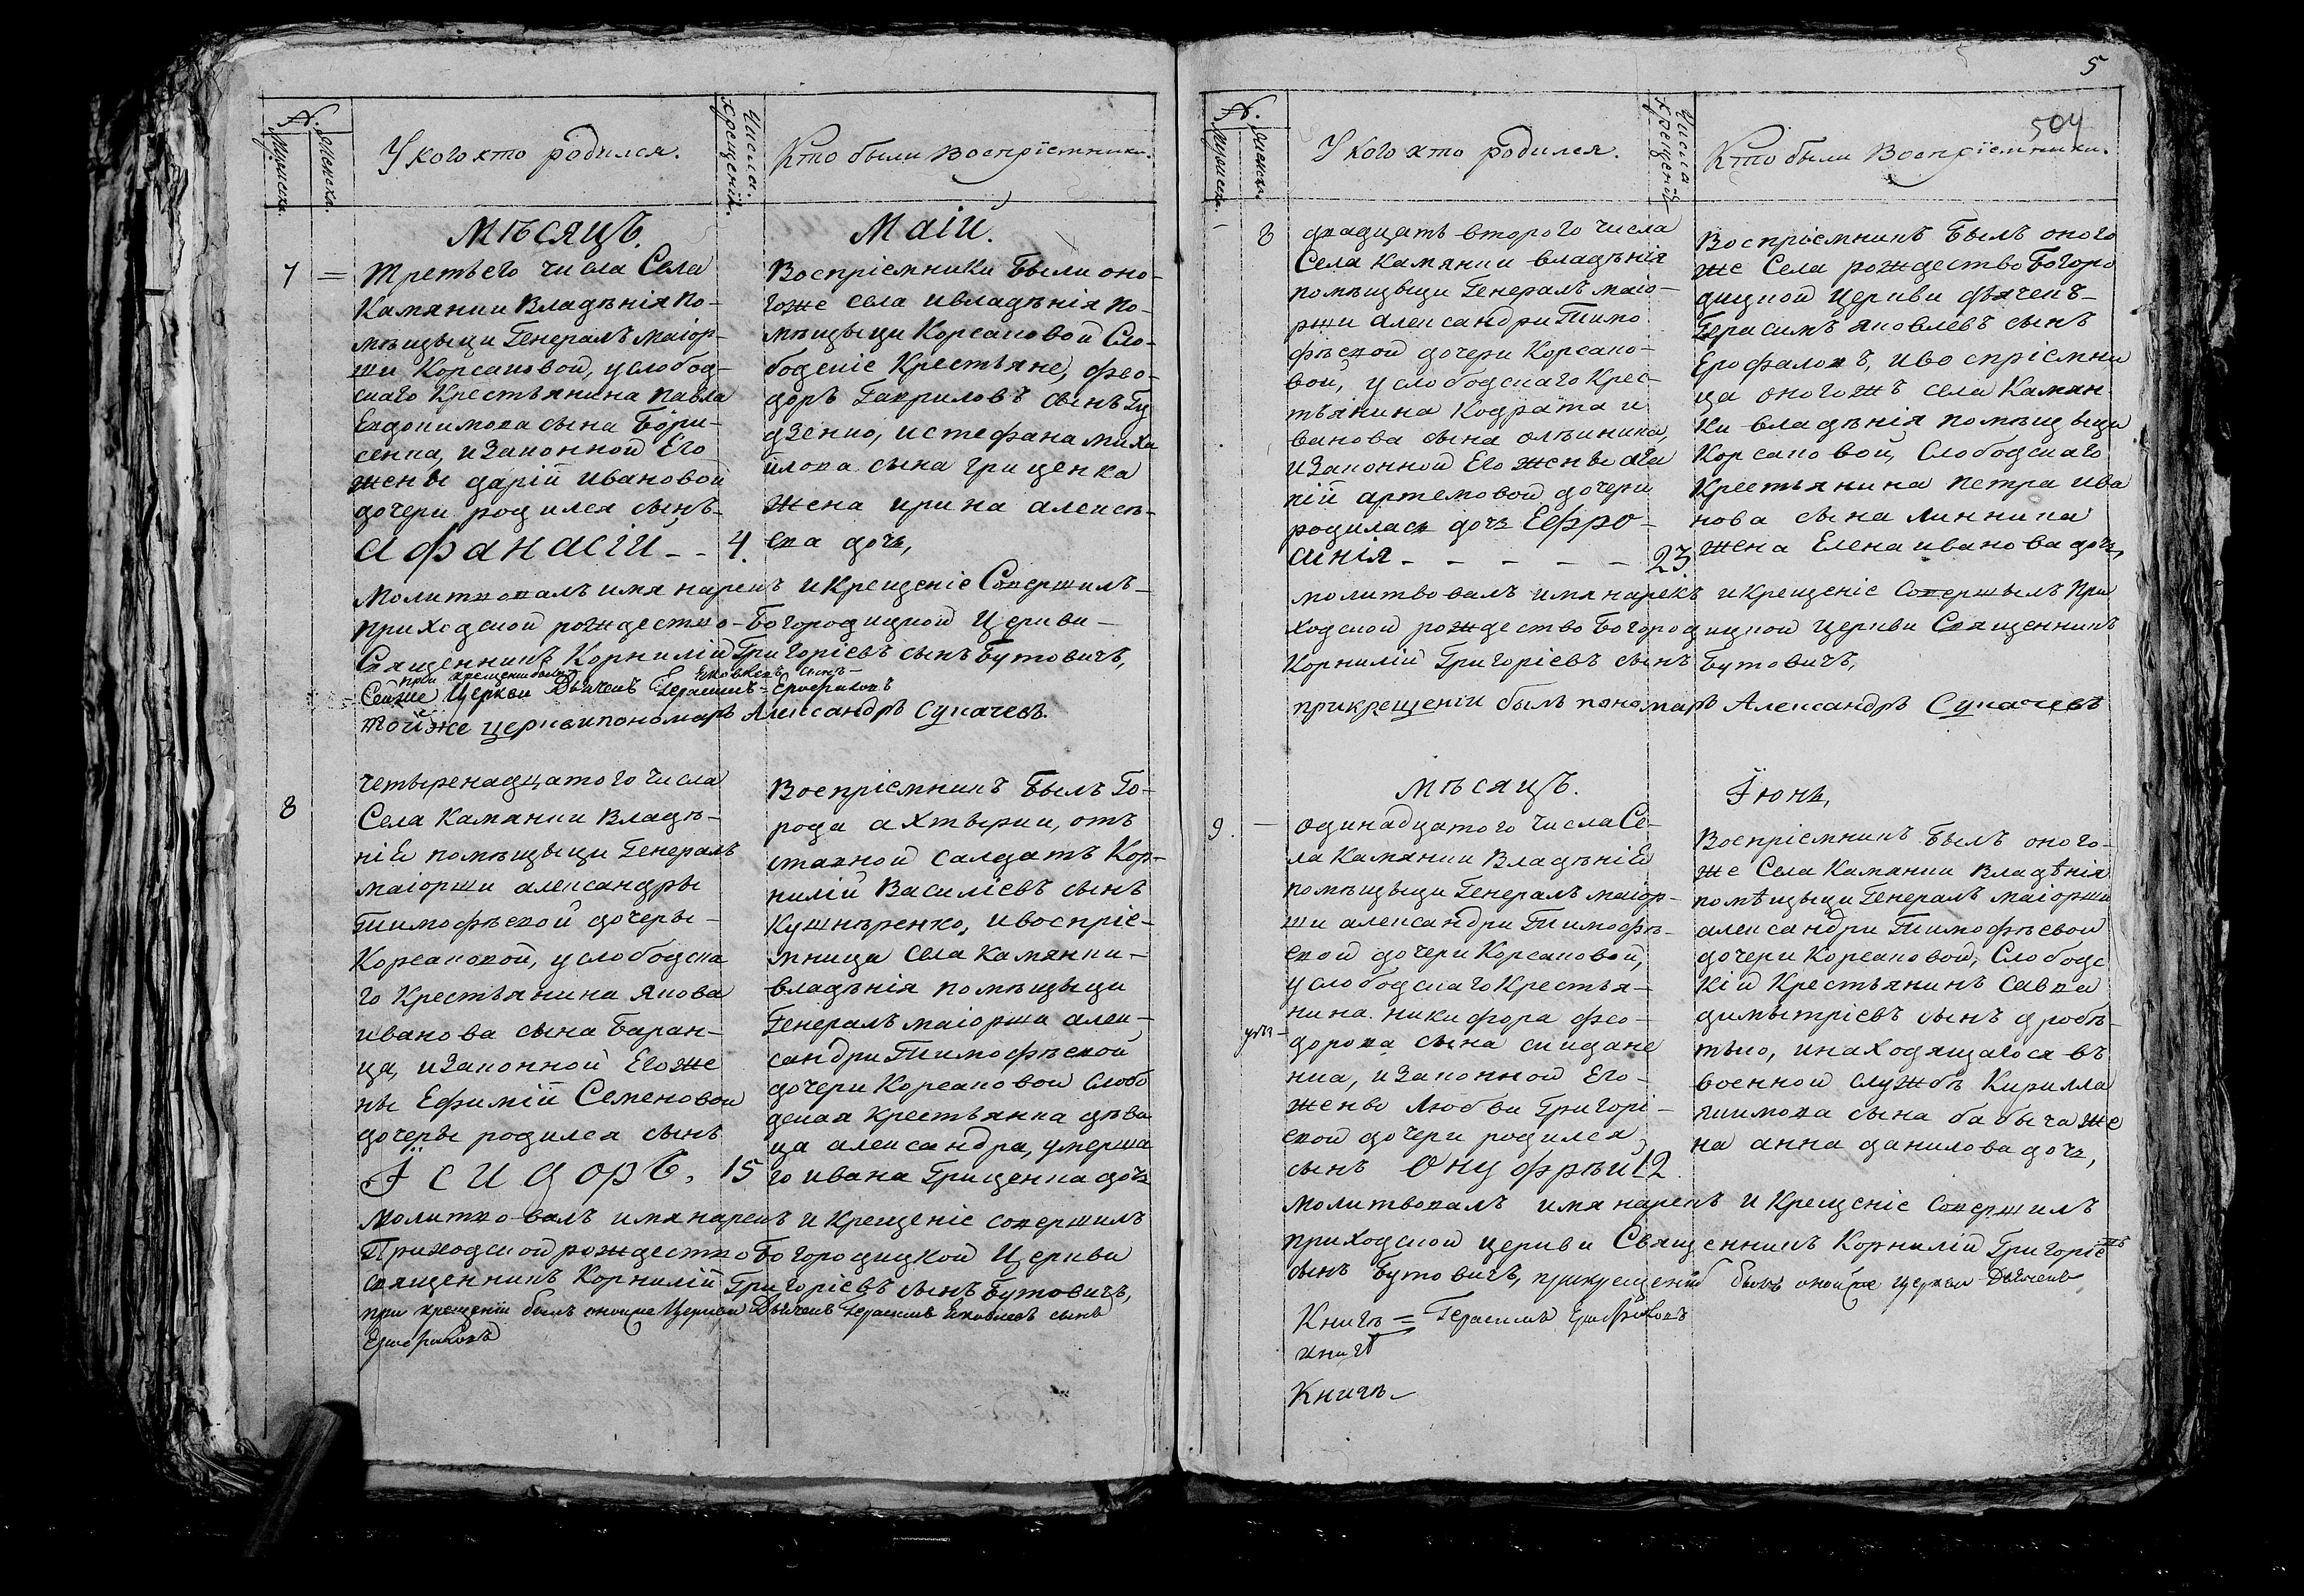 №.
Мужеска.
Женска.
У кого кто родился.
Числа.
крещенія.
Кто были Воспріемники.
мѣсяцъ.
7 =
третьего числа Села
Камянки Владѣнія по-
мѣщыцы Генералъ маіор-
ши Корсаковой, услобод-
скаго Крестьянина Павла
Евдокимова сына Бори-
сенка, изаконной Его
жены даріи ивановой
дочери родился сынъ
афанасій - - 4.
маіи.
Воспріемники были оно-
гоже села ивладѣнія по-
мѣщыцы Корсаковой Сло-
бодскіе Крестьяне, фео-
доръ Гавриловъ сынъ Гу
дзенко, истефана миха
йлова сына грищенка
жена ирина алексѣ-
ева дочь,
молитвовалъ имя нарекъ и Крещеніе Совершилъ
приходской рождество-Богородицкой Церкви
Священникъ Корнилій Григоріевъ сынъ Бутовичъ,
при крещеніи были Яковлевъ сынъ
Сейже Церкви Дьячекъ Герасимъ Ерофаловъ
тойже церкви пономарь Александръ Сукачевъ.
8
четыренадцатого числа
Села Камянки Владѣ-
ніе помѣщыцы Генералъ
маіорши александры
Тимофѣевой дочеры
Корсаковой, услобоцка
го Крестьянина якова
иванова сына Баран-
ца, изаконной Егоже
ны Ефиміи Семеновой
дочеры родился сынъ
Ісидоръ. 15
Воспріемникъ былъ Го-
рода ахтырки, отъ
ставной салдатъ Кор-
нилій Василіевъ сынъ
Кушнѣренко, ивоспріе-
мница села камянки
владѣнія помѣщыцы
Генералъ маіорша алек-
сандри Тимофѣевой
дочери Корсаковой слобо
дская крестьянка дѣви
ца александра, умерша
го ивана Грищенка дочь
молитвовалъ имянарекъ и Крещеніе совершилъ
Приходской рождество Богородицкой Церкви
священникъ Корнилій Григоріевъ сынъ Бутовичъ,
при крещеніи былъ оноиже Церкви Дьячекъ Герасимъ Яковлевъ сынъ
Ерофаловъ
5
504
№.
Мужеска.
Женска.
У кого кто родился.
Числа
крещенія
Кто были Воспріемники.
- 8
двадцать второго числа
Села Камянки владѣнія
помѣщыцы Генералъ маіо-
рши александри Тимо
фѣевой дочери Корсако-
вой, услободскаго Крес-
тьянина Кодрата и
ванова сына олѣиника,
изаконной Его жены ага
піи артемовой дочери
родилась дочь Ефро-
синія - - - - - 23
Воспріемникъ былъ оного
же Села рождество Богоро
дицкой церкви дьячекъ
Герасимъ яковлевъ сынъ
Ерофаловъ, ивоспріемни
ца оногожъ села Камян
ки владѣнія помѣщыцы
Корсаковой, Слободскаго
Крестьянина петра ива
нова сына линника
жена Елена иванова дочь,
молитвовалъ имя нарекъ и крещеніе Совершылъ при
ходской рождество Богородицкой церкви Священникъ
Корнилій Григоріевъ сынъ Бутовичъ,
прикрещеніи былъ пономарь Александръ Сукачевъ
мѣсяцъ.
Іюнь,
9. -
одинадцатого числа Се-
ла Камянки Владѣніе
помѣщыцы Генералъ маіор-
ши александри Тимофѣ-
евой дочери Корсаковой,
услободскаго Крестья-
нина никифора фео-
дорова сына
нка, изаконной Его
жены любви Григорі-
евой дочери родился
сынъ Онуфрѣй 12
Воспріемникъ былъ оного-
же Села Камянки Владѣнія
помѣщыцы Генералъ маіорши
александри Тимофѣевой
дочери Корсаковой, Слободс
кій Крестьянинъ Савва
димытріевъ сынъ дробя-
тько, инаходящагося въ
военной службѣ Кирилла
сына бабыча же
на анна данилова дочь,
молитвовалъ имя нарекъ и Крещеніе Совершилъ
приходской церкви Священникъ Корнилій Григоріевъ
сынъ Бутовичъ, прикрещеніи былъ онойже церкви Дьячекъ
Книгъ = Герасимъ Ерофаловъ
книгъ
Книгъ